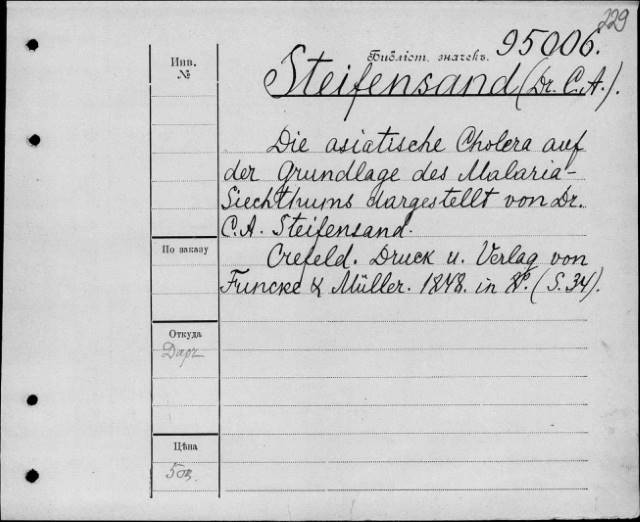 229
Библіот. значекъ. 95006.
Инв.
№
Steifensand (Dr. C. A.).
Die asiatische Cholera auf
der Grundlage des Malaria-
Siechthums dargestellt von Dr.
C. A. Steifensand.
По заказу
Crefeld. Druck u. Verlag von
Funcke & Müller. 1848. in 8º. (S. 34).
Откуда
Даръ
Цѣна